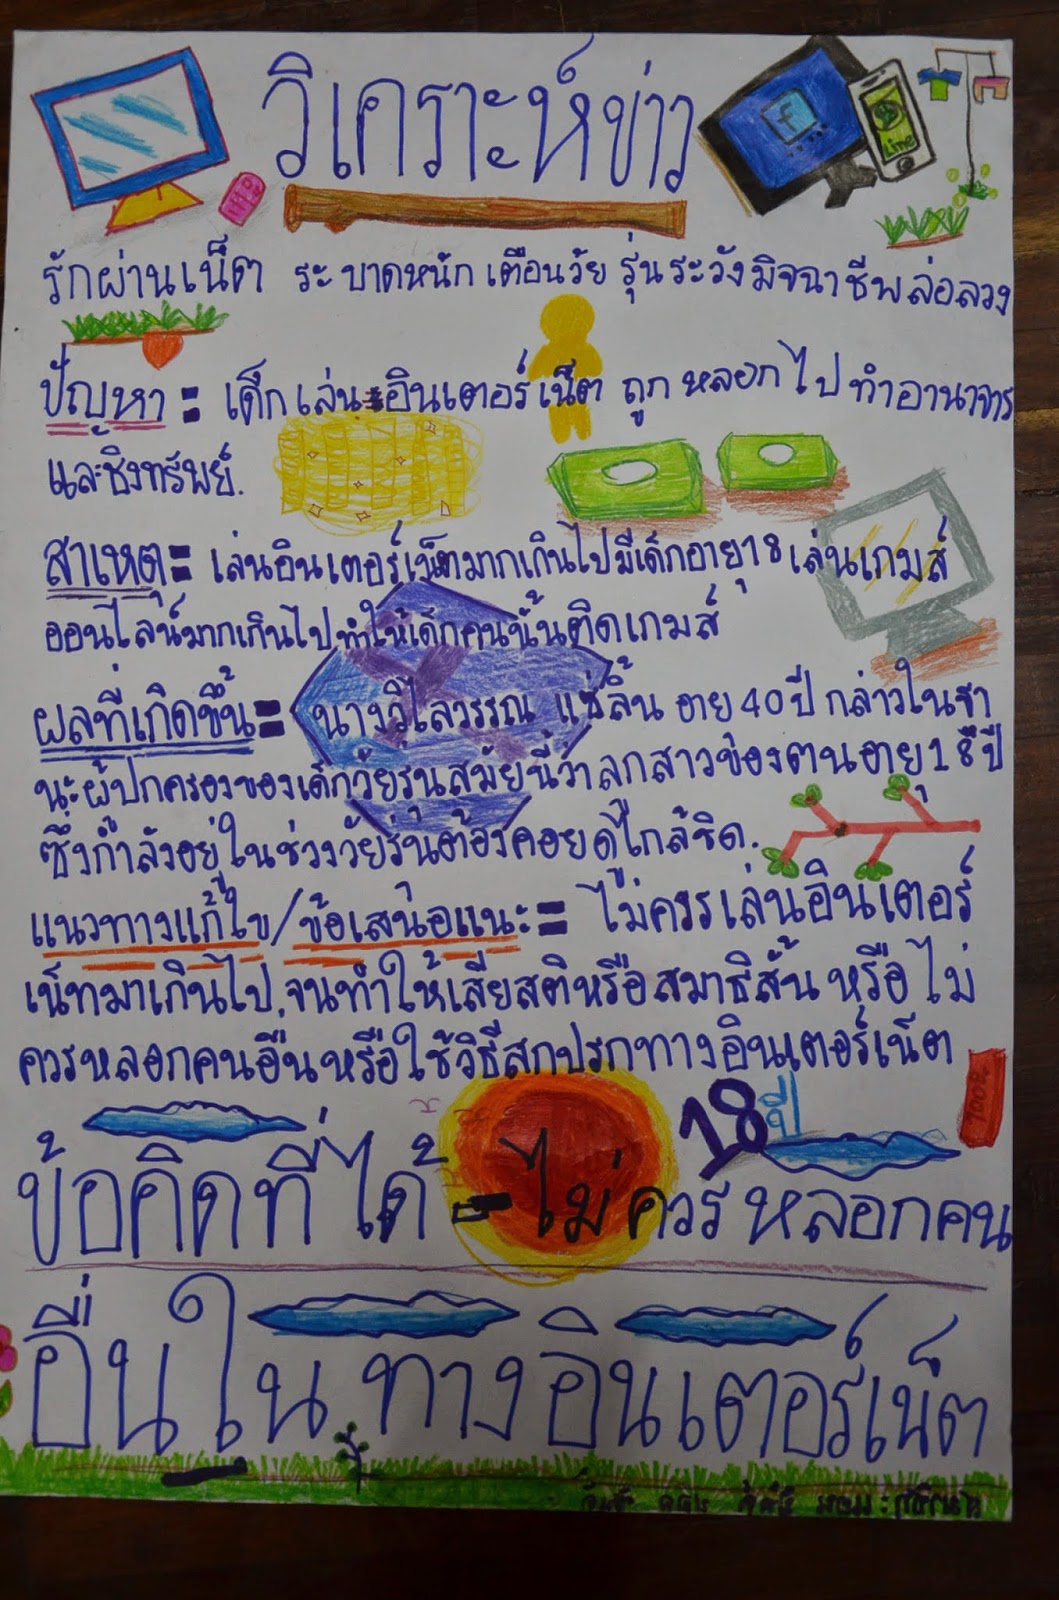 วิเคราะห์ข่าว
f
Line
รักผ่านเน็ต ระบาดหนัก เตือนวัยรุ่นระวังมิจฉาชีพล่อลวง
ปัญหา = เด็กเล่นอินเตอร์เน็ต ถูกหลอกไปทำอานาจาร
และชิงทรัพย์.
สาเหตุ = เล่นอินเตอร์เน็ทมากเกินไปมีเด็กอายุ18 เล่นเกมส์
ออนไลน์มากเกินไปทำให้เด็กคนนั้นติดเกมส์
ผลที่เกิดขึ้น = นางวิไลวรรณ แซ่ลิ้น อายุ 40 ปี กล่าวในฐา
นะผู้ปกครองของเด็กวัยรุ่นสมัยนี้ว่าลูกสาวของตนอายุ 18 ปี
ซึ่งกำลังอยู่ในช่วงวัยรุ่นต้องคอยดูใกล้ชิด.
แนวทางแก้ไข/ข้อเสนอแนะ = ไม่ควรเล่นอินเตอร์
เน็ทมาเกินไป.จนทำให้เสียสติหรือสมาธิสั้น หรือไม่
ควรหลอกคนอื่นหรือใช้วิธีสกปรกทางอินเตอร์เน็ต
18 ปี
ข้อคิดที่ได้ - ไม่ควรหลอกคน
อื่นในทางอินเตอร์เน็ต